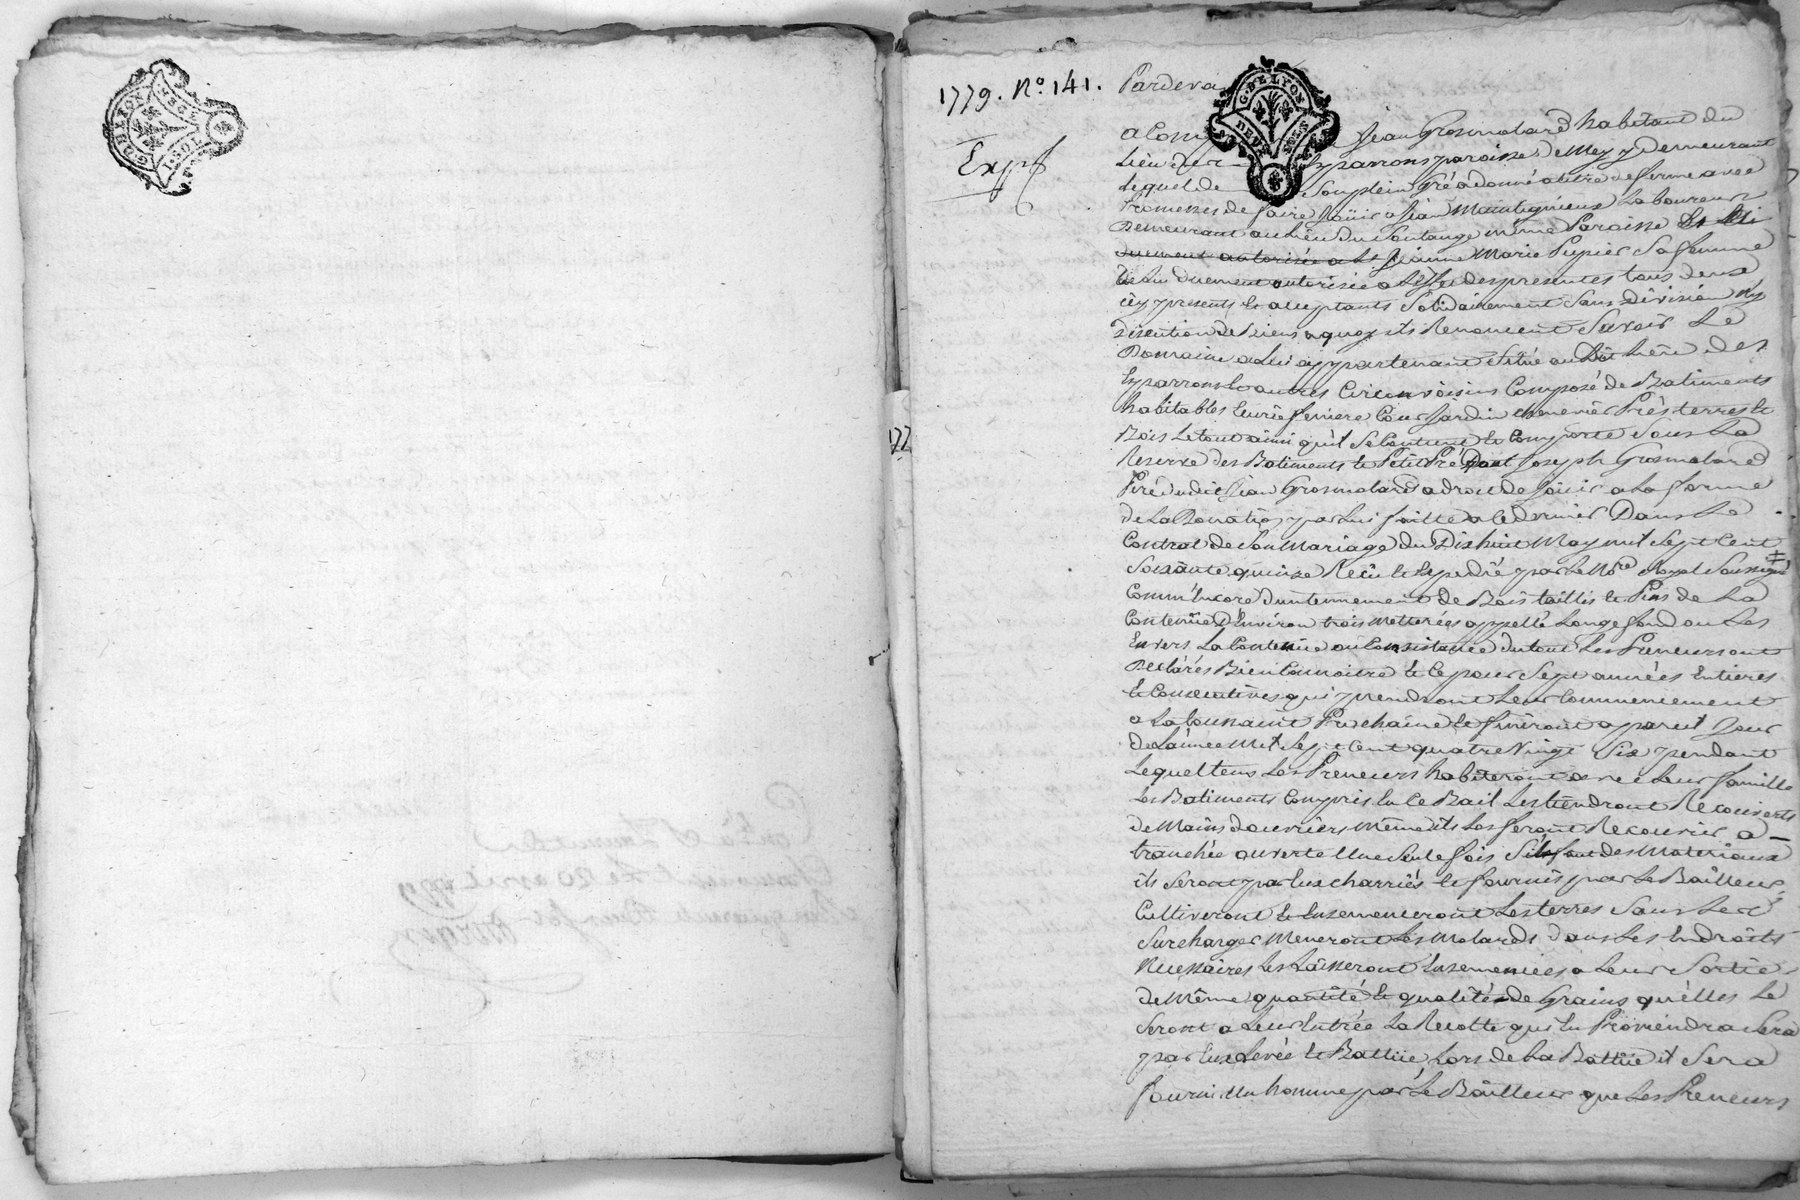 G. DE LYON
DEUX SOLS
1779. N.º 141.
Exp.
177
Pardeva
G. DE LYON
DEUX SOLS
a Comp Jean Grosmolard habitant du
Lieu de Esparrons paroisse de Mey y demeurant
Lequel de Son plein Gré a donné a titre de ferme avec
Promesses de faire Joüir a Jean Montagneux Laboureur
Demeurant au Lieu du Soulange même Paroisse Et
duement autorisée a Jeanne Marie Pupier Sa femme
de Lui duement autorisée a L'effet des presentes tous deux
icy presents et acceptants Solidairement Sans division ny
discution de biens a quoy ils Renoncent Savoir Le
Domaine a Lui appartenant Situé au dit Lieu des
Esparrons et autres Circonvoisins Composé de Batiments
habitables Ecurie feniere Cour Jardin chenevier Prés terres et
Bois Le tout ainsi qu'il Se Contient et Comporte Sous La
Reserve des Batiments et Petit Pré dont Joseph Grosmolard
Pere du dit Jean Grosmolard a droit de Joüir a La forme
de La Donation par Lui faitte a ce dernier Dans Le
Contrat de Son Mariage du Dix huit May mil Sept Cent
Soixante quinze Reçu et Expedié par Le No.re Royal Soussigné
Comm'encore d'un tennement de Bois taillis et Pins de La
Contenüe d'Environ trois metterées appellé Longefond ou Les
Envers La Contenüe ou Consistance du tout Les Preneurs ont
Declarés Bien Connoitre Et Ce pour Sept années Entieres
Et Consecutives qui prendront Leur Commencement
a La toussaint Prochaine et finiront a pareil Jour
de L'année Mil Sept Cent quatre Vingt Six pendant
Lequel tems Les Preneurs habiteront avec Leur famille
Les Batiments Compris En Ce Bail Les tiendront Recouverts
de Mains d'ouvriers Même ils Les feront Recouvrir a
tranchée ouverte Une Seule fois S'il faut des Materiaux
ils Seront par Eux charriés et fournis par Le Bailleur,
Cultiveront et Ensemenceront Les terres Sans Les
Surcharger Meneront Les Molards dans Les Endroits
Necessaires Les Laisseront Ensemencées a Leur Sortie
de Même quantité et qualité de Grains qu'elles Le
Seront a Leur Entrée La Recolte qui En Proviendra Sera
par Eux Levée et Battüe, Lors de La Battüe il Sera
fourni Un homme par Le Bailleur que Les Preneurs